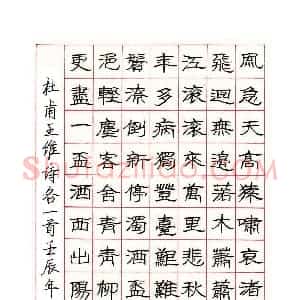 風急天高猿嘯哀渚
飛迴無邊落木蕭蕭
江滾滾來萬里悲秋
年多病獨登臺艱難
鬢潦倒新停濁酒盃
浥輕塵客舍青青柳
更盡一盃酒西出陽
杜甫王維詩各一首壬辰年